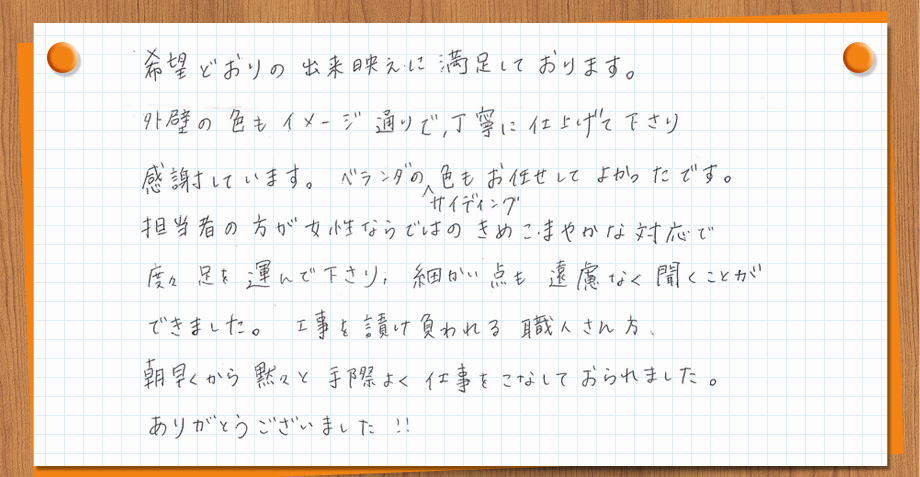 希望どおりの出来映えに満足しております。
外壁の色もイメージ通りで、丁寧に仕上げて下さり
感謝しています。ベランダのサイディング色もお任せしてよかったです。
担当者の方が女性ならではのきめこまやかな対応で
度々足を運んで下さり、細かい点も遠慮なく聞くことが
できました。工事を請け負われる職人さん方、
朝早くから黙々と手際よく仕事をこなしておられました。
ありがとうございました!!